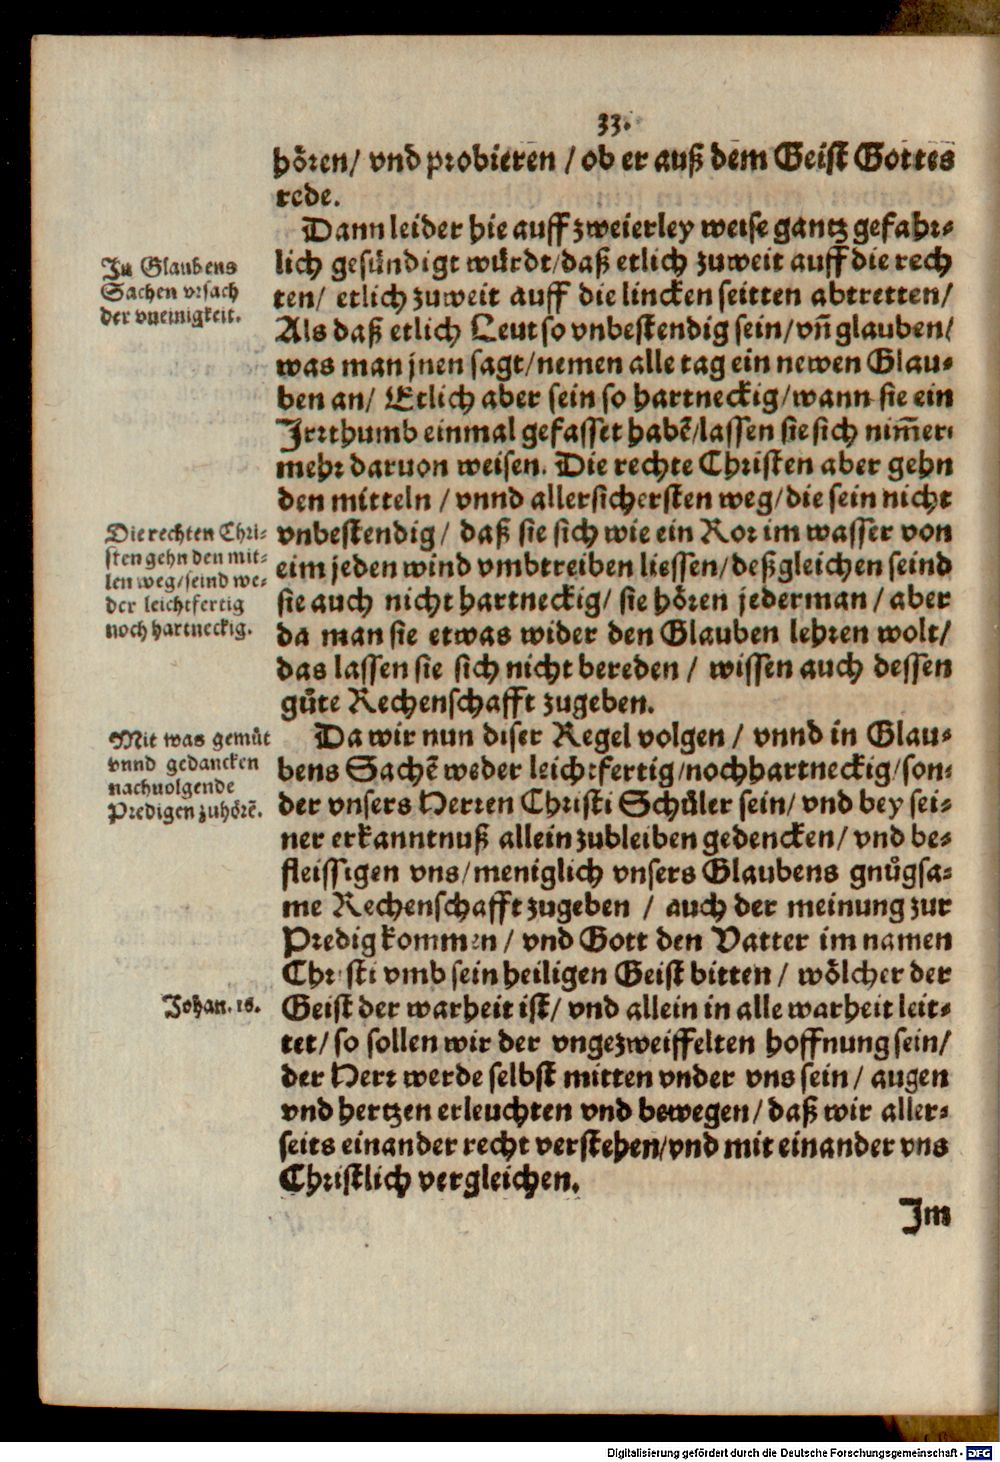 33.
hören/ vnd probieren / ob er auß dem Geist Gottes
rede.
Dann leider hie auff zweierley weise gantz gefahr⸗
lich gesündigt würdt/daß etlich zuweit auff die rech
ten/ etlich zuweit auff die lincken seitten abtretten/
Als daß etlich Leut so vnbestendig sein/vn̄ glauben/
was man jnen sagt/nemen alle tag ein newen Glau⸗
ben an/ Etlich aber sein so hartneckig/wann sie ein
Jrrthumb einmal gefasset habē/lassen sie sich nim̄er⸗
mehr daruon weisen. Die rechte Christen aber gehn
den mitteln / vnnd allersichersten weg/die sein nicht
vnbestendig/ daß sie sich wie ein Ror im wasser von
eim jeden wind vmbtreiben liessen/deßgleichen seind
sie auch nicht hartneckig/ sie hören jederman / aber
da man sie etwas wider den Glauben lehren wolt/
das lassen sie sich nicht bereden / wissen auch dessen
gůte Rechenschafft zugeben.
Da wir nun diser Regel volgen / vnnd in Glau⸗
bens Sachē weder leichtfertig/noch hartneckig/son⸗
der vnsers Herren Christi Schůler sein/ vnd bey sei⸗
ner erkanntnuß allein zubleiben gedencken/ vnd be⸗
fleissigen vns/meniglich vnsers Glaubens gnůgsa⸗
me Rechenschafft zugeben / auch der meinung zur
Predig kommen/ vnd Gott den Vatter im namen
Christi vmb sein heiligen Geist bitten / wölcher der
Geist der warheit ist/ vnd allein in alle warheit leit⸗
tet/ so sollen wir der vngezweiffelten hoffnung sein/
der Herr werde selbst mitten vnder vns sein / augen
vnd hertzen erleuchten vnd bewegen/daß wir aller⸗
seits einander recht verstehen/vnd mit einander vns
Christlich vergleichen.
Im
Jn Glaubens
Sachen vrsach
der vneinigkeit.
Die rechten Chri⸗
sten gehn den mit⸗
len weg/seind we⸗
der leichtfertig
noch hartneckig.
Mit was gemüt
vnnd gedancken
nachuolgende
Predigen zuhörē.
Johan. 16.
Digitalisierung gefördert durch die Deutsche Forschungsgemeinschaft - DFG